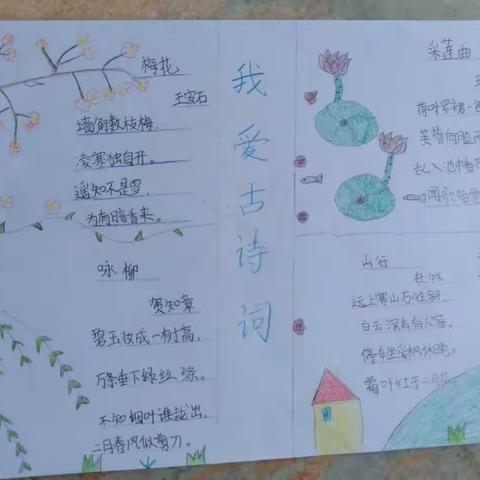 我爱古诗词
梅花
王安石
墙角数枝梅,
凌寒独自开。
遥知不是雪,
为有暗香来。
咏柳
贺知章
碧玉妆成一树高,
万条垂下绿丝绦。
不知细叶谁裁出,
二月春风似剪刀。
采莲曲
王
荷叶罗裙一色
芙蓉向脸两
乱入池中看不
闻歌始觉
山行
杜牧
远上寒山石径斜,
白云深处有人家。
停车坐爱枫林晚,
霜叶红于二月